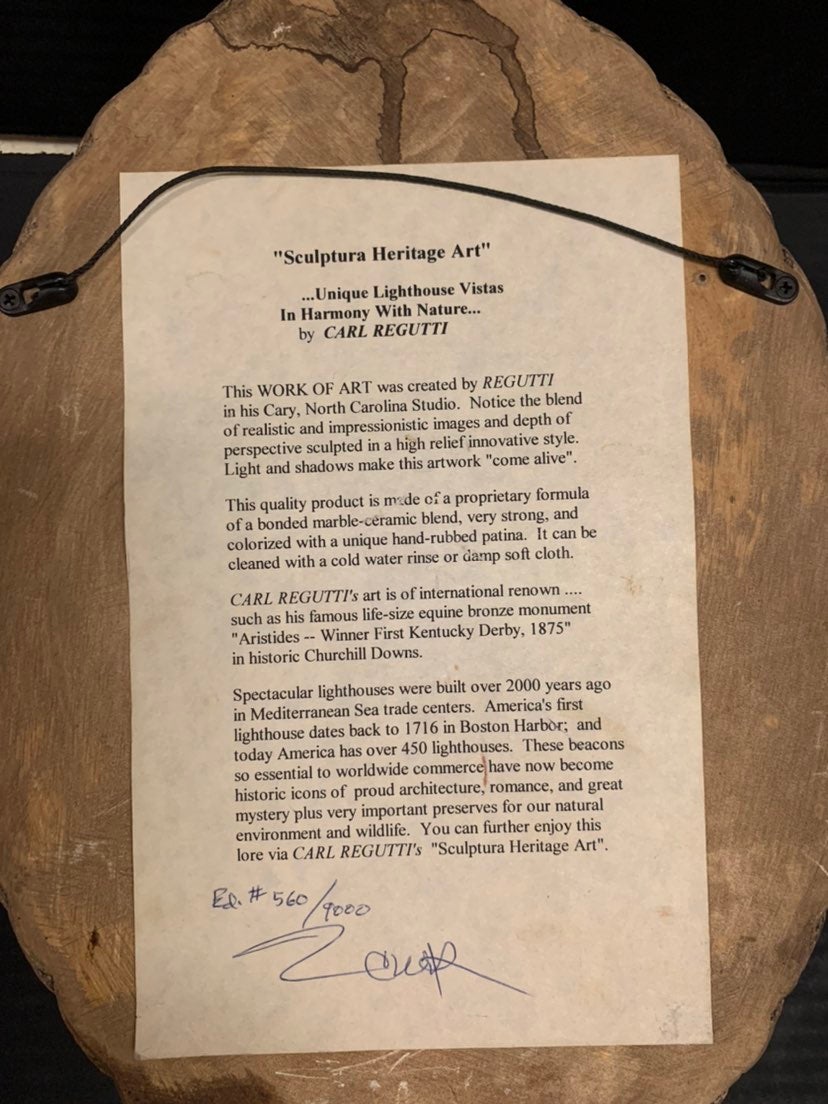 "Sculptura Heritage Art"
...Unique Lighthouse Vistas
In Harmony With Nature...
by CARL REGUTTI
This WORK OF ART was created by REGUTTI
in his Cary, North Carolina Studio. Notice the blend
of realistic and impressionistic images and depth of
perspective sculpted in a high relief innovative style.
Light and shadows make this artwork "come alive".
This quality product is made of a proprietary formula
of a bonded marble-ceramic blend, very strong, and
colorized with a unique hand-rubbed patina. It can be
cleaned with a cold water rinse or damp soft cloth.
CARL REGUTTI's art is of international renown ....
such as his famous life-size equine bronze monument
"Aristides -- Winner First Kentucky Derby, 1875"
in historic Churchill Downs.
Spectacular lighthouses were built over 2000 years ago
in Mediterranean Sea trade centers. America's first
lighthouse dates back to 1716 in Boston Harbor; and
today America has over 450 lighthouses. These beacons
so essential to worldwide commerce have now become
historic icons of proud architecture, romance, and great
mystery plus very important preserves for our natural
environment and wildlife. You can further enjoy this
lore via CARL REGUTTI's "Sculptura Heritage Art".
Ed. # 560/9000